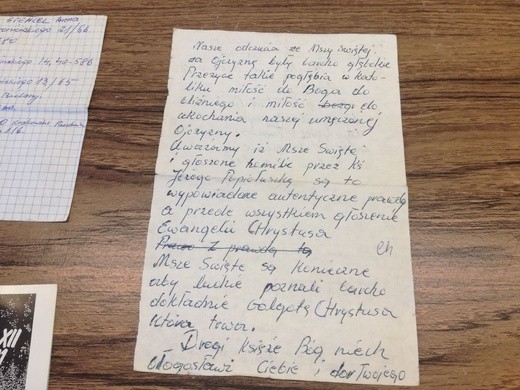 SPENCEL Anna
21/66
14, 40-586
13/65
Nasze odczucia ze Mszy Świętej
za Ojczyznę były bardzo głębokie
Przeżycia takie pogłębia w kato-
liku miłość do Boga do
bliźniego i miłość do
ukochania naszej umęczonej
Ojczyzny.
Uważamy iż Msze Święte
i głoszone homilie przez Ks
Jerzego Popiełuszkę są to
wypowiadane autentyczne prawdy
a przede wszystkiem głoszenie
Ewangelii Chrystusa
Prawo z prawdą to
Msze Święte są konieczne
aby ludzie poznali bardzo
dokładnie Golgotę Chrystusa
która trwa.
Drogi Księże Bóg niech
błogosławi Ciebie i dar Twojego
XII